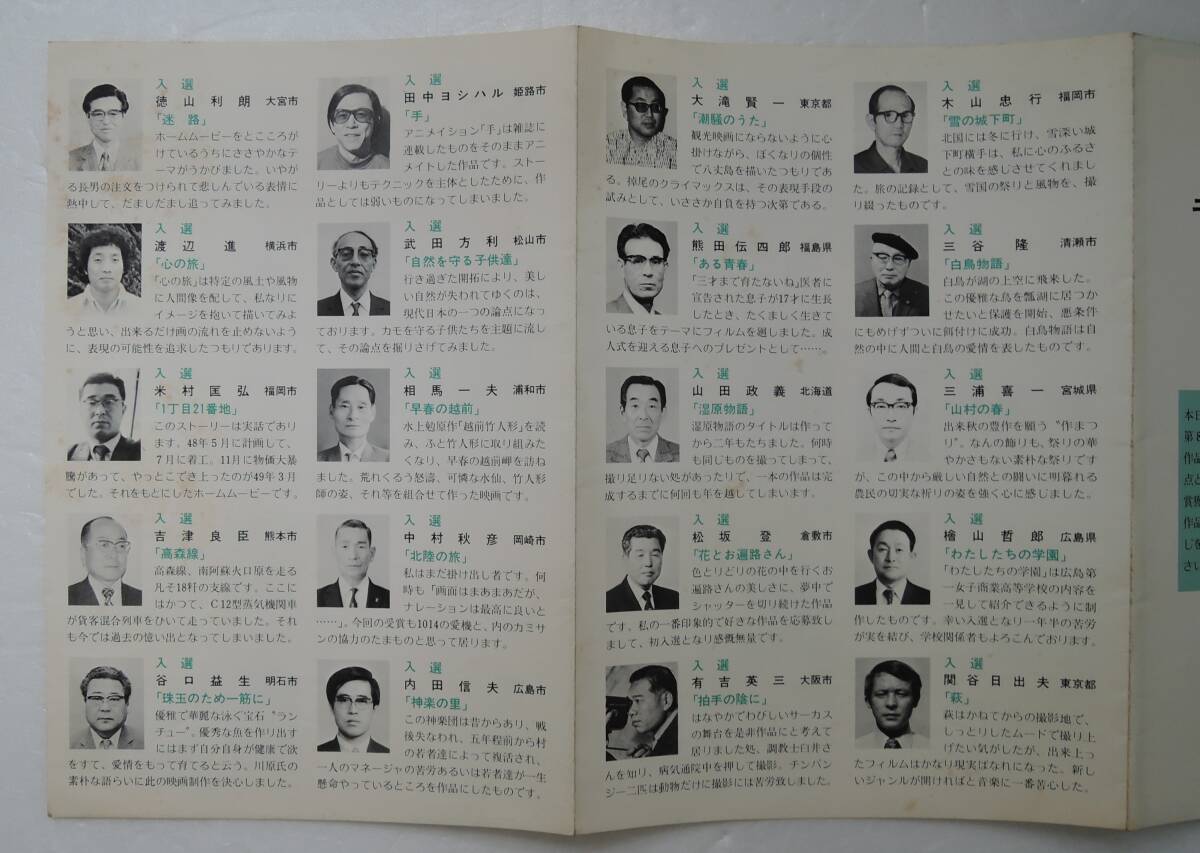 入選
徳山利朗 大宮市
「迷路」
ホームムービーをとこころが
けているうちにささやかなテ
ーマがうかびました。いやが
る長男の注文をつけられて悲しんでいる表情に
熱中して、だましだまし追ってみました。
入選
渡辺進 横浜市
「心の旅」
「心の旅」は特定の風土や風物
に人間像を配して、私なりに
イメージを抱いて描いてみよ
うと思い、出来るだけ画の流れを止めないよう
に、表現の可能性を追求したつもりであります。
入選
米村匡弘 福岡市
「1丁目21番地」
このストーリーは実話であり
ます。48年5月に計画して、
7月に着工。11月に物価大暴
騰があって、やっとこでき上ったのが49年3月
でした。それをもとにしたホームムービーです。
入選
吉津良臣 熊本市
「高森線」
高森線、南阿蘇火口原を走る
凡そ18粁の支線です。ここに
はかつて、C12型蒸気機関車
が貨客混合列車をひいて走っていました。それ
も今では過去の憶い出となってしまいました。
入選
谷口益生 明石市
「珠玉のため一筋に」
優雅で華麗な泳ぐ宝石〝ラン
チュー〟。優秀な魚を作り出す
にはまず自分自身が健康で欲
をすて、愛情をもって育てると云う。川原氏の
素朴な語らいに此の映画制作を決心しました。
入選
田中ヨシハル 姫路市
「手」
アニメイション「手」は雑誌に
連載したものをそのままアニ
メイトした作品です。ストー
リーよりもテクニックを主体としたために、作
品としては弱いものになってしまいました。
入選
武田方利 松山市
「自然を守る子供達」
行き過ぎた開拓により、美し
い自然が失われてゆくのは、
現代日本の一つの論点になっ
ております。カモを守る子供たちを主題に流し
て、その論点を掘りさげてみました。
入選
相馬一夫 浦和市
「早春の越前」
水上勉原作「越前竹人形」を読
み、ふと竹人形に取り組みた
くなり、早春の越前岬を訪ね
ました。荒れくるう怒濤、可憐な水仙、竹人形
師の姿、それ等を組合せて作った映画です。
入選
中村秋彦 岡崎市
「北陸の旅」
私はまだ掛け出し者です。何
時も「画面はまあまあだが、
ナレーションは最高に良いと
……」。今回の受賞も1014の愛機と、内のカミサ
ンの協力のたまものと思って居ります。
入選
内田信夫 広島市
「神楽の里」
この神楽団は昔からあり、戦
後失なわれ、五年程前から村
の若者達によって復活され、
一人のマネージャの苦労あるいは若者達が一生
懸命やっているところを作品にしたものです。
入選
大滝賢一 東京都
「潮騒のうた」
観光映画にならないように心
掛けながら、ぼくなりの個性
で八丈島を描いたつもりであ
る。掉尾のクライマックスは、その表現手段の
試みとして、いささか自負を持つ次第である。
入選
熊田伝四郎 福島県
「ある青春」
「三才まで育たないね」医者に
宣告された息子が17才に生長
したとき、たくましく生きて
いる息子をテーマにフィルムを廻しました。成
人式を迎える息子へのプレゼントとして……。
入選
山田政義 北海道
「湿原物語」
湿原物語のタイトルは作って
から二年もたちました。何時
も同じものを撮ってしまって、
撮り足りない処があったりで、一本の作品は完
成するまでに何回も年を越してしまいます。
入選
松坂登 倉敷市
「花とお遍路さん」
色とりどりの花の中を行くお
遍路さんの美しさに、夢中で
シャッターを切り続けた作品
です。私の一番印象的で好きな作品を応募致し
まして、初入選となり感慨無量です。
入選
有吉英三 大阪市
「拍手の陰に」
はなやかでわびしいサーカス
の舞台を是非作品にと考えて
居りました処、調教士臼井さ
んを知り、病気通院中を押して撮影。チンパン
ジー二匹は動物だけに撮影には苦労致しました。
入選
木山忠行 福岡市
「雪の城下町」
北国には冬に行け、雪深い城
下町横手は、私に心のふるさ
との味を感じさせてくれまし
た。旅の記録として、雪国の祭りと風物を、撮
り綴ったものです。
入選
三谷隆 清瀬市
「白鳥物語」
白鳥が湖の上空に飛来した。
この優雅な鳥を瓢湖に居つか
せたいと保護を開始、悪条件
にもめげずついに餌付けに成功。白鳥物語は自
然の中に人間と白鳥の愛情を表したものです。
入選
三浦喜一 宮城県
「山村の春」
出来秋の豊作を願う〝作まつ
り〟。なんの飾りも、祭りの華
やかさもない素朴な祭りです
が、この中から厳しい自然との闘いに明暮れる
農民の切実な祈りの姿を強く心に感じました。
入選
檜山哲郎 広島県
「わたしたちの学園」
「わたしたちの学園」は広島第
一女子商業高等学校の内容を
一見して紹介できるように制
作したものです。幸い入選となり一年半の苦労
が実を結び、学校関係者もよろこんでおります。
入選
関谷日出夫 東京都
「萩」
萩はかねてからの撮影地で、
しっとりしたムードで撮り上
げたい気がしたが、出来上っ
たフィルムはかなり現実ばなれになった。新し
いジャンルが開ければと音楽に一番苦心した。
本日
第8
作品
点と
作品
じを
さい